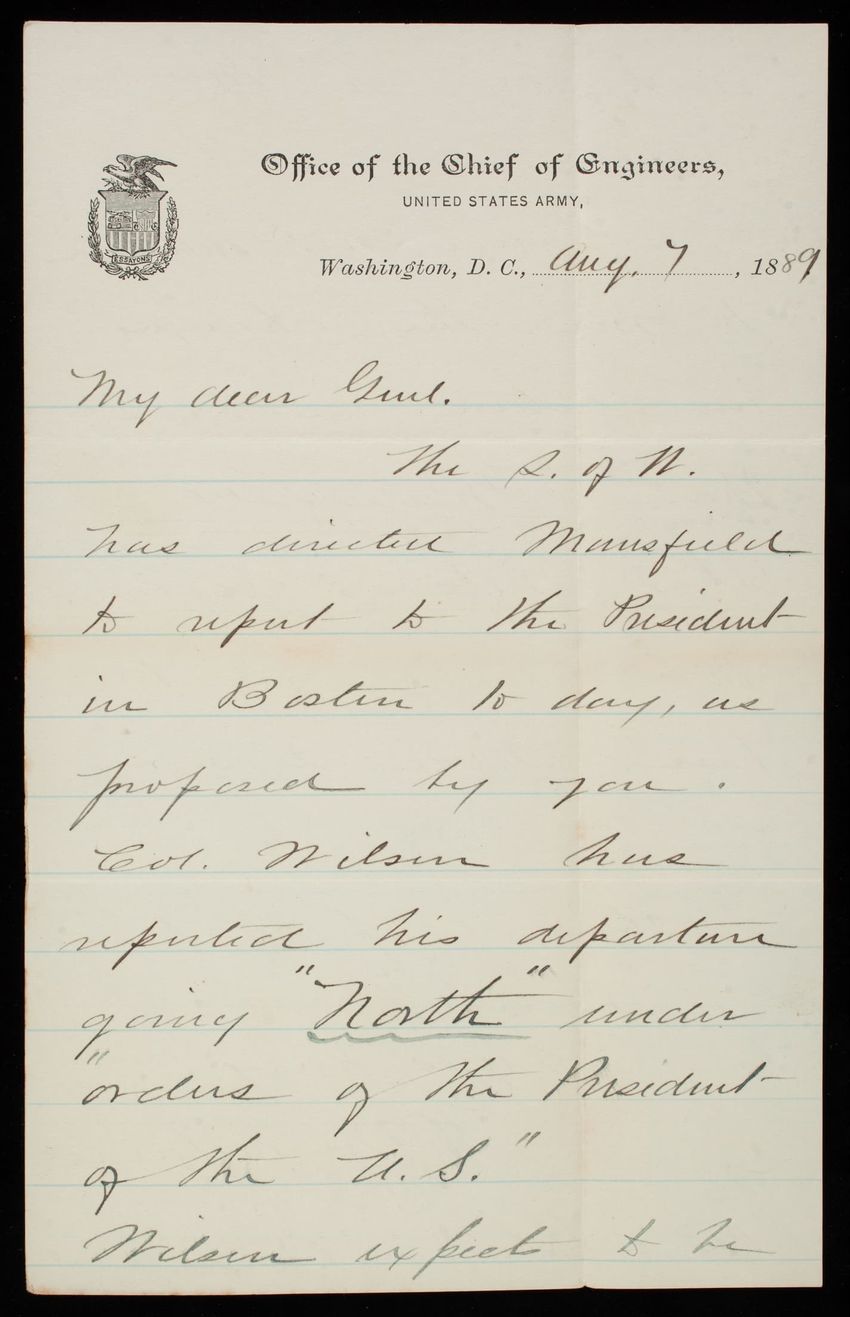 Office of the Chief of Engineers,
UNITED STATES ARMY,
Washington, D. C., Aug. 7, 1889
ESSAYONS
My dear Genl.
The S. of W.
has directed Mansfield
to report to the President
in Boston to day, as
proposed by you.
Col. Wilson has
reported his departure
going "North" under
"orders of the President
of the U.S."
Wilson expects to be